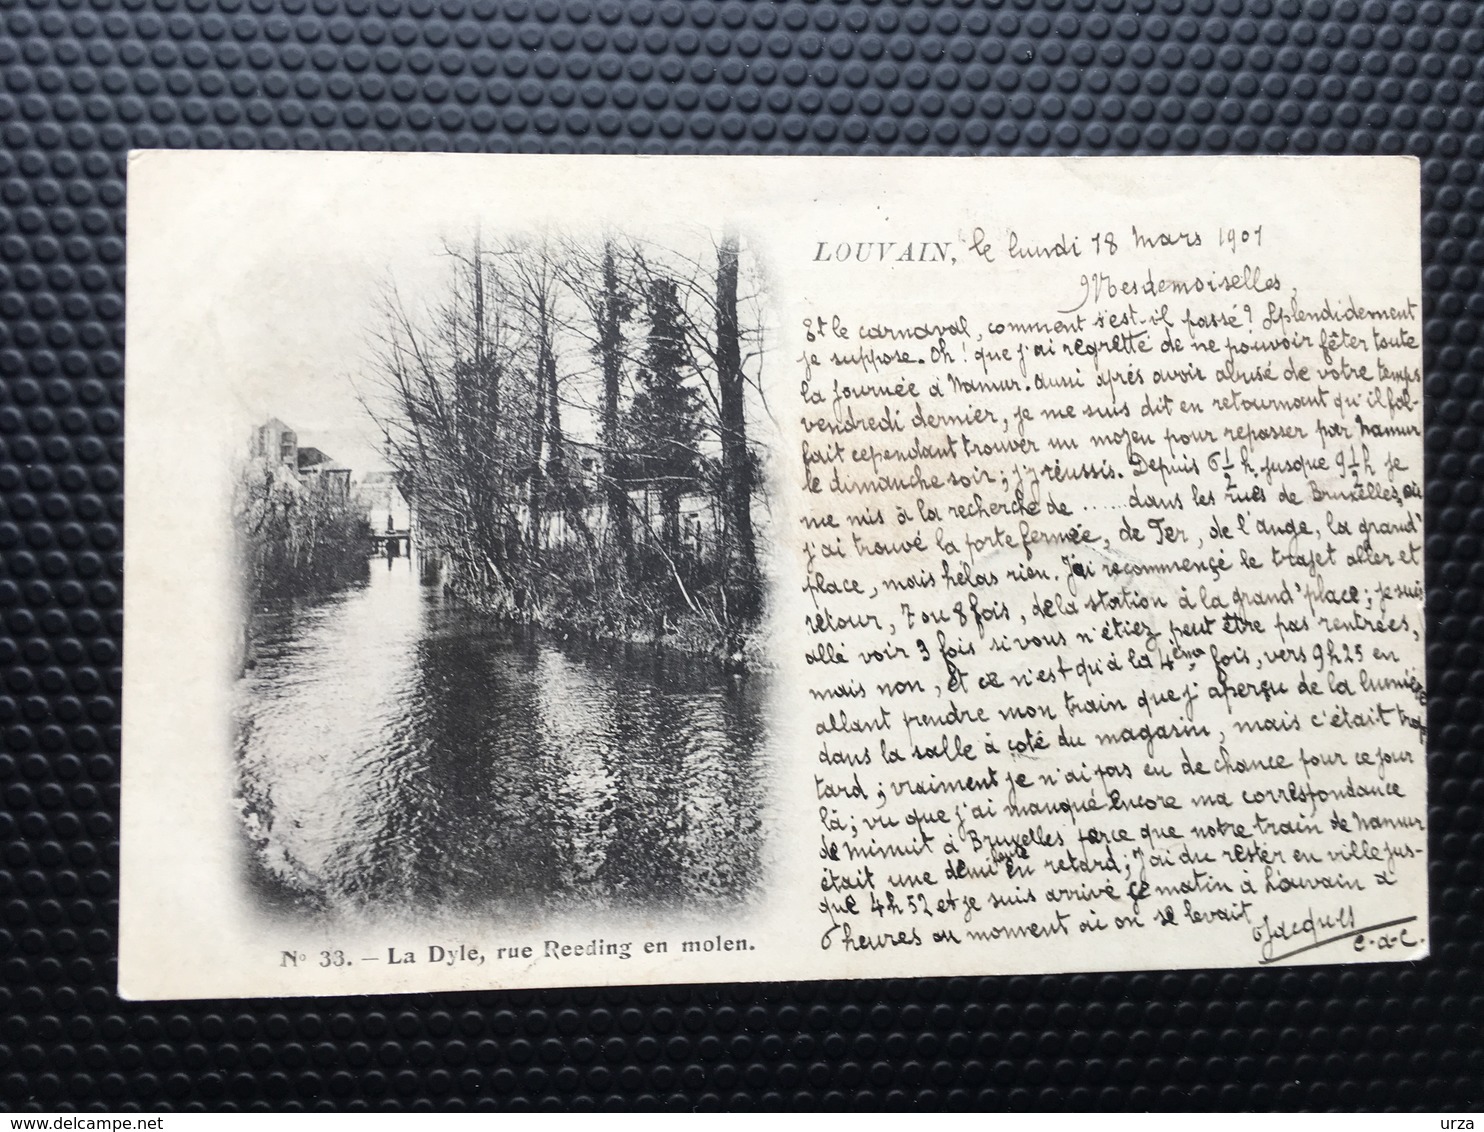 LOUVAIN, le lundi 18 Mars 1901
Mesdemoiselles,
Et le carnaval, comment s'est-il passé? Splendidement
je suppose. Oh! que j'ai regretté de ne pouvoir fêter toute
la journée à Namur. Aussi après avoir abusé de votre temps
vendredi dernier, je me suis dit en retournant qu'il fal-
lait cependant trouver un moyen pour repasser par Namur
le dimanche soir; j'y réussis. Depuis 6 1/2 h. jusque 9 1/2 h je
me mis à la recherche de ...... dans les rues de Bruxelles, où
j'ai trouvé la porte fermée, de Fer, de l'ange, la grand'
place, mais hélas rien. J'ai recommencé le trajet aller et
retour, 7 ou 8 fois, de la station à la grand'place; je suis
allé voir 3 fois si vous n'étiez peut être pas rentrées,
mais non, et ce n'est qu'à la 4eme fois, vers 9h25 en
allant prendre mon train que j'aperçu de la lumière
dans la salle à coté du magasin, mais c'était trop
tard; vraiment je n'ai pas eu de chance pour ce jour
là; vu que j'ai manqué encore ma correspondance
de minuit à Bruxelles parce que notre train de Namur
était une demi heure en retard; J'ai du rester en ville jus-
que 4h52 et je suis arrivé ce matin à Louvain à
6 heures au moment où on se levait
Jacques
C-d-C.
No 33. — La Dyle, rue Reeding en molen.
urza